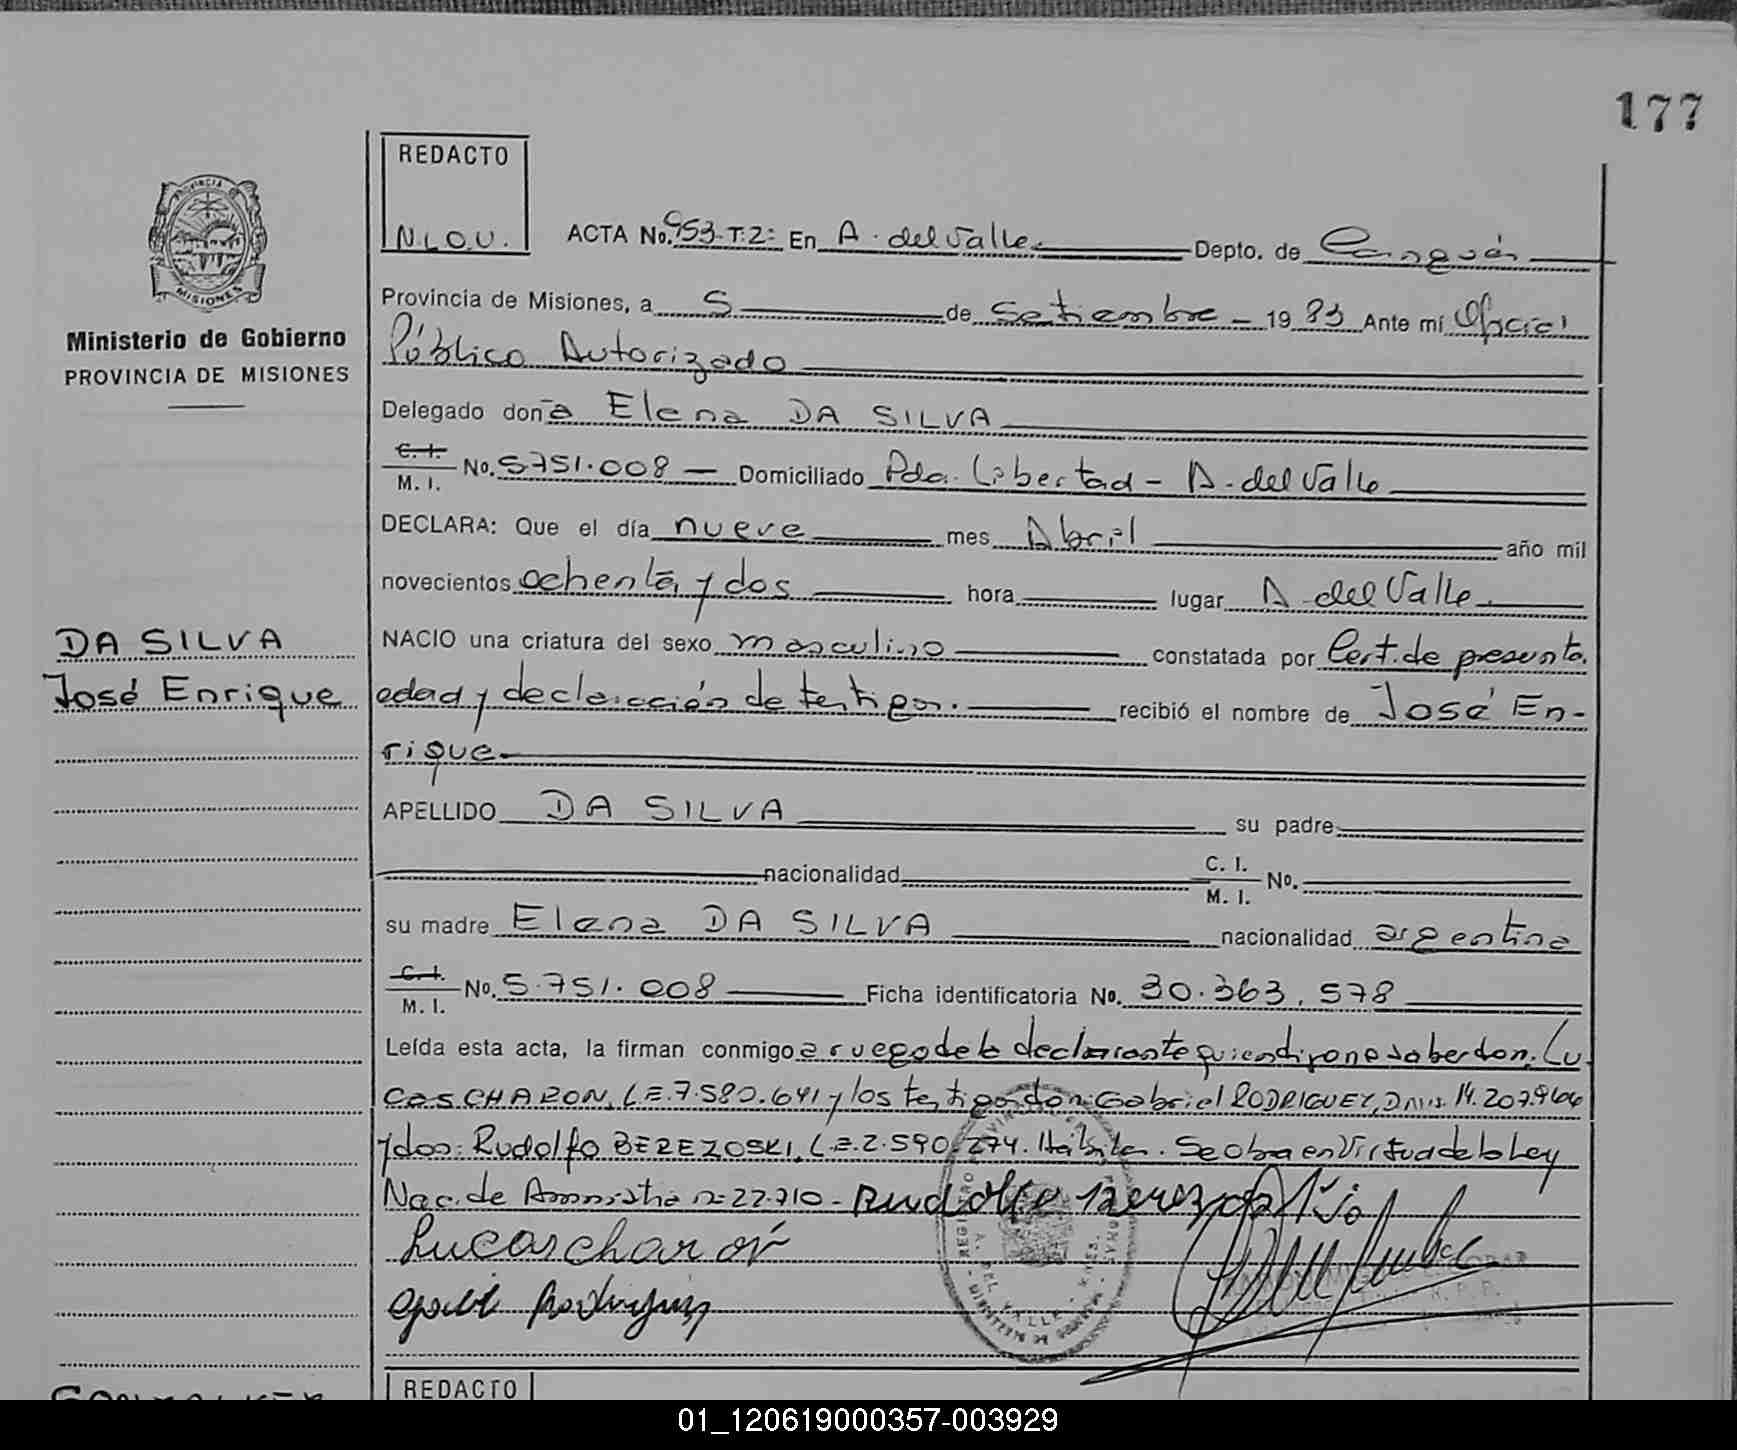 177
REDACTO
N.L.O.U.
PROVINCIA DE
MISIONES
Ministerio de Gobierno
PROVINCIA DE MISIONES
ACTA No. 953-T.2: En A. del Valle Depto. de Cainguás
Provincia de Misiones, a 5 de Setiembre - 19 83 Ante mí Oficial
Público Autorizado
Delegado don ª Elena DA SILVA
C. I. M. I. No. 5.751.008 - Domiciliado Pda. Libertad - A. del Valle
DECLARA: Que el día nueve mes Abril año mil
novecientos ochenta y dos hora lugar A. del Valle
DA SILVA
José Enrique
NACIO una criatura del sexo masculino constatada por Cert. de presunta
edad y declaración de testigos. recibió el nombre de José En-
rique
APELLIDO DA SILVA su padre
nacionalidad C. I. M. I. No.
su madre Elena DA SILVA nacionalidad argentina
C. I. M. I. No. 5.751.008 Ficha identificatoria No. 30.363.578
Leída esta acta, la firman conmigo a ruego de la declarante quien dijo no saber don: Lu-
cas CHARON, L.E. 7.580.641 y los testigos don: Gabriel RODRIGUEZ, D.N.I. 14.207.966
y don: Rudolfo BEREZOSKI, L.E. 2.590.274. Hábiles. Se obra en Virtud de la Ley
Nac. de Amnistia nº 22.710 - Rudolfo Berezoski
Lucas charon
Rodriguez
REDACTO
01_120619000357-003929